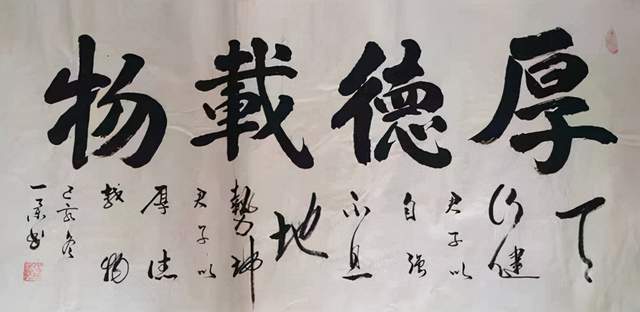 厚德載物
天
行健
君子以
自强
不息
地
勢坤
君子以
厚德
載物
己亥冬